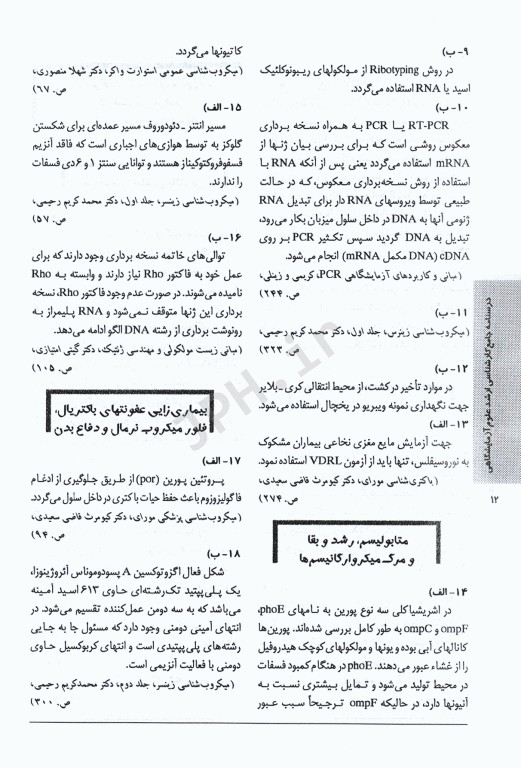 ۹- ب)
در روش Ribotyping از مولکولهای ریبونوکلئیک
اسید یا RNA استفاده می‌گردد.
۱۰- ب)
RT-PCR یا PCR به همراه نسخه برداری
معکوس روشی است که برای بررسی بیان ژنها از
mRNA استفاده می‌گردد یعنی پس از آنکه RNA با
استفاده از روش نسخه‌برداری معکوس، که در حالت
طبیعی توسط ویروسهای RNA دار برای تبدیل RNA
ژنومی آنها به DNA در داخل سلول میزبان بکار می‌رود،
تبدیل به DNA گردید سپس تکثیر PCR بر روی
cDNA (DNA مکمل mRNA) انجام می‌شود.
(مبانی و کاربردهای آزمایشگاهی PCR، کریمی و زینلی،
ص. ۲۴۴)
۱۱- ب)
(میکروب شناسی زینرس، جلد اول، دکتر محمد کریم رحیمی،
ص. ۳۲۳)
۱۲- ب)
در موارد تأخیر در کشت، از محیط انتقالی کری - بلایر
جهت نگهداری نمونه ویبریو در یخچال استفاده می‌شود.
۱۳- الف)
جهت آزمایش مایع مغزی نخاعی بیماران مشکوک
به نوروسیفلس، تنها باید از آزمون VDRL استفاده نمود.
(باکتری‌شناسی مورای، دکتر کیومرث قاضی سعیدی،
ص. ۲۷۴)
متابولیسم، رشد و بقا
و مرگ میکروارگانیسم‌ها
۱۴- الف)
در اشریشیاکلی سه نوع پورین به نامهای phoE،
ompF و ompC به طور کامل بررسی شده‌اند. پورین‌ها
کانالهای آبی بوده و یونها و مولکولهای کوچک هیدروفیل
را از غشاء عبور می‌دهند. phoE در هنگام کمبود فسفات
در محیط تولید می‌شود و تمایل بیشتری نسبت به
آنیونها دارد، در حالیکه ompF ترجیحاً سبب عبور
کاتیونها می‌گردد.
(میکروب‌شناسی عمومی استوارت واکر، دکتر شهلا منصوری،
ص. ۶۷)
۱۵- الف)
مسیر انتنر - دئودوروف مسیر عمده‌ای برای شکستن
گلوکز به توسط هوازی‌های اجباری است که فاقد آنزیم
فسفوفروکتوکیناز هستند و توانایی سنتز ۱ و ۶ دی فسفات
را ندارند.
(میکروب‌شناسی زینسر، جلد اول، دکتر محمد کریم رحیمی،
ص. ۵۷)
۱۶- ب)
توالی‌های خاتمه نسخه برداری وجود دارند که برای
عمل خود به فاکتور Rho نیاز دارند و وابسته به Rho
نامیده می‌شوند. در صورت عدم وجود فاکتور Rho، نسخه
برداری این ژنها متوقف نمی‌شود و RNA پلیمراز به
رونوشت برداری از رشته DNA الگو ادامه می‌دهد.
(مبانی زیست مولکولی و مهندسی ژنتیک، دکتر گیتی امتیازی،
ص. ۱۰۵)
بیماری‌زایی عفونتهای باکتریال،
فلور میکروب نرمال و دفاع بدن
۱۷- الف)
پروتئین پورین (por) از طریق جلوگیری از ادغام
فاگولیزوزوم باعث حفظ حیات باکتری در داخل سلول می‌گردد.
(میکروب‌شناسی پزشکی مورای، دکتر کیومرث قاضی سعیدی،
ص. ۹۴)
۱۸- ب)
شکل فعال اگزوتوکسین A پسودوموناس آئروژینوزا،
یک پلی‌پپتید تک‌رشته‌ای حاوی ۶۱۳ اسید آمینه
می‌باشد که به سه دومن عمل‌کننده تقسیم می‌شود. در
انتهای آمینی دومنی وجود دارد که مسئول جا به جایی
رشته‌های پلی‌پپتیدی است و انتهای کربوکسیل حاوی
دومنی با فعالیت آنزیمی است.
(میکروب‌شناسی زینسر، جلد دوم، دکتر محمدکریم رحیمی،
ص. ۳۰۰)
درسنامه جامع کارشناسی ارشد علوم آزمایشگاهی
۱۲